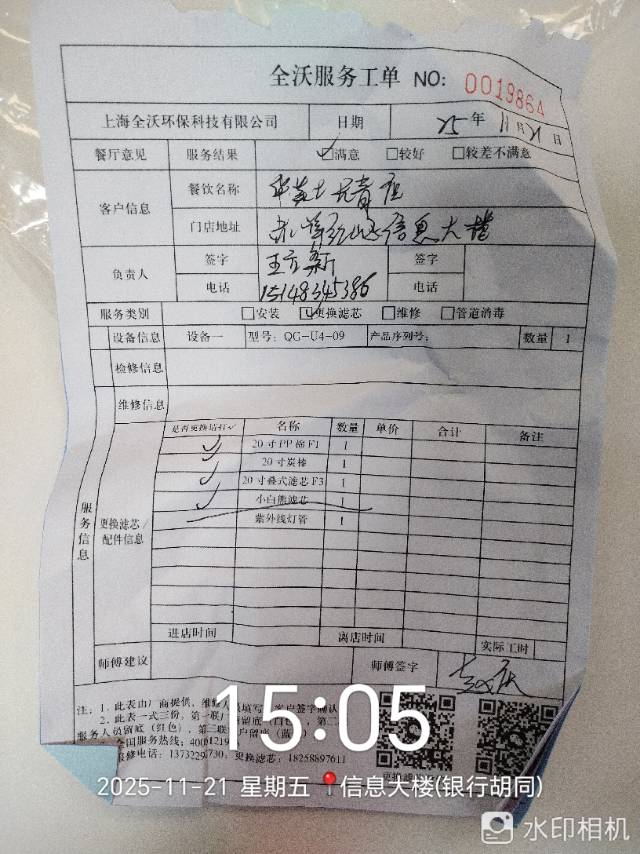 全沃服务工单 NO: 0019864
上海全沃环保科技有限公司 日期 25 年 11 月 21 日
餐厅意见 服务结果 ☑满意 □较好 □较差不满意
客户信息 餐饮名称
门店地址 信息大楼
负责人 签字 签字
电话 15148345386 电话
服务类别 □安装 ☑更换滤芯 □维修 □管道消毒
设备信息 设备一 型号: QG-U4-09 产品序列号: 数量 1
检修信息
维修信息
服务信息
更换滤芯/配件信息
是否更换请打✓ 名称 数量 单价 合计 备注
✓ 20寸PP棉F1 1
✓ 20寸炭棒 1
✓ 20寸叠式滤芯F3 1
✓ 小白熊滤芯 1
紫外线灯管 1
进店时间 离店时间 实际工时
师傅建议 师傅签字
注: 1. 此表由厂商提供, 维修人员填写
2. 此表一式三份, 第一联
服务人员留底(红色), 第三联
全国服务热线:
更换滤芯: 18258897611
15:05
2025-11-21 星期五 信息大楼(银行胡同)
水印相机